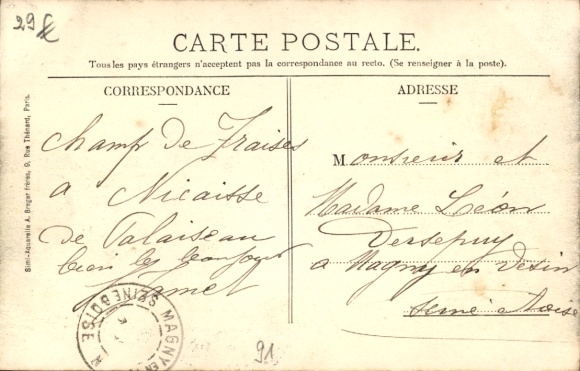 29
CARTE POSTALE.
Tous les pays étrangers n'acceptent pas la correspondance au recto. (Se renseigner à la poste).
CORRESPONDANCE
champ de Fraises
a Nicaisse
de Palaiseau
bien le bonjour
Hamet
ADRESSE
Monsieur et
Madame Léon
Dersepuy
a Magny en Vexin
Seine et Oise
Simi-Aquarelle A. Breger Frères, 9, Rue Thénard, Paris.
MAGNY EN
SEINE & OISE
91